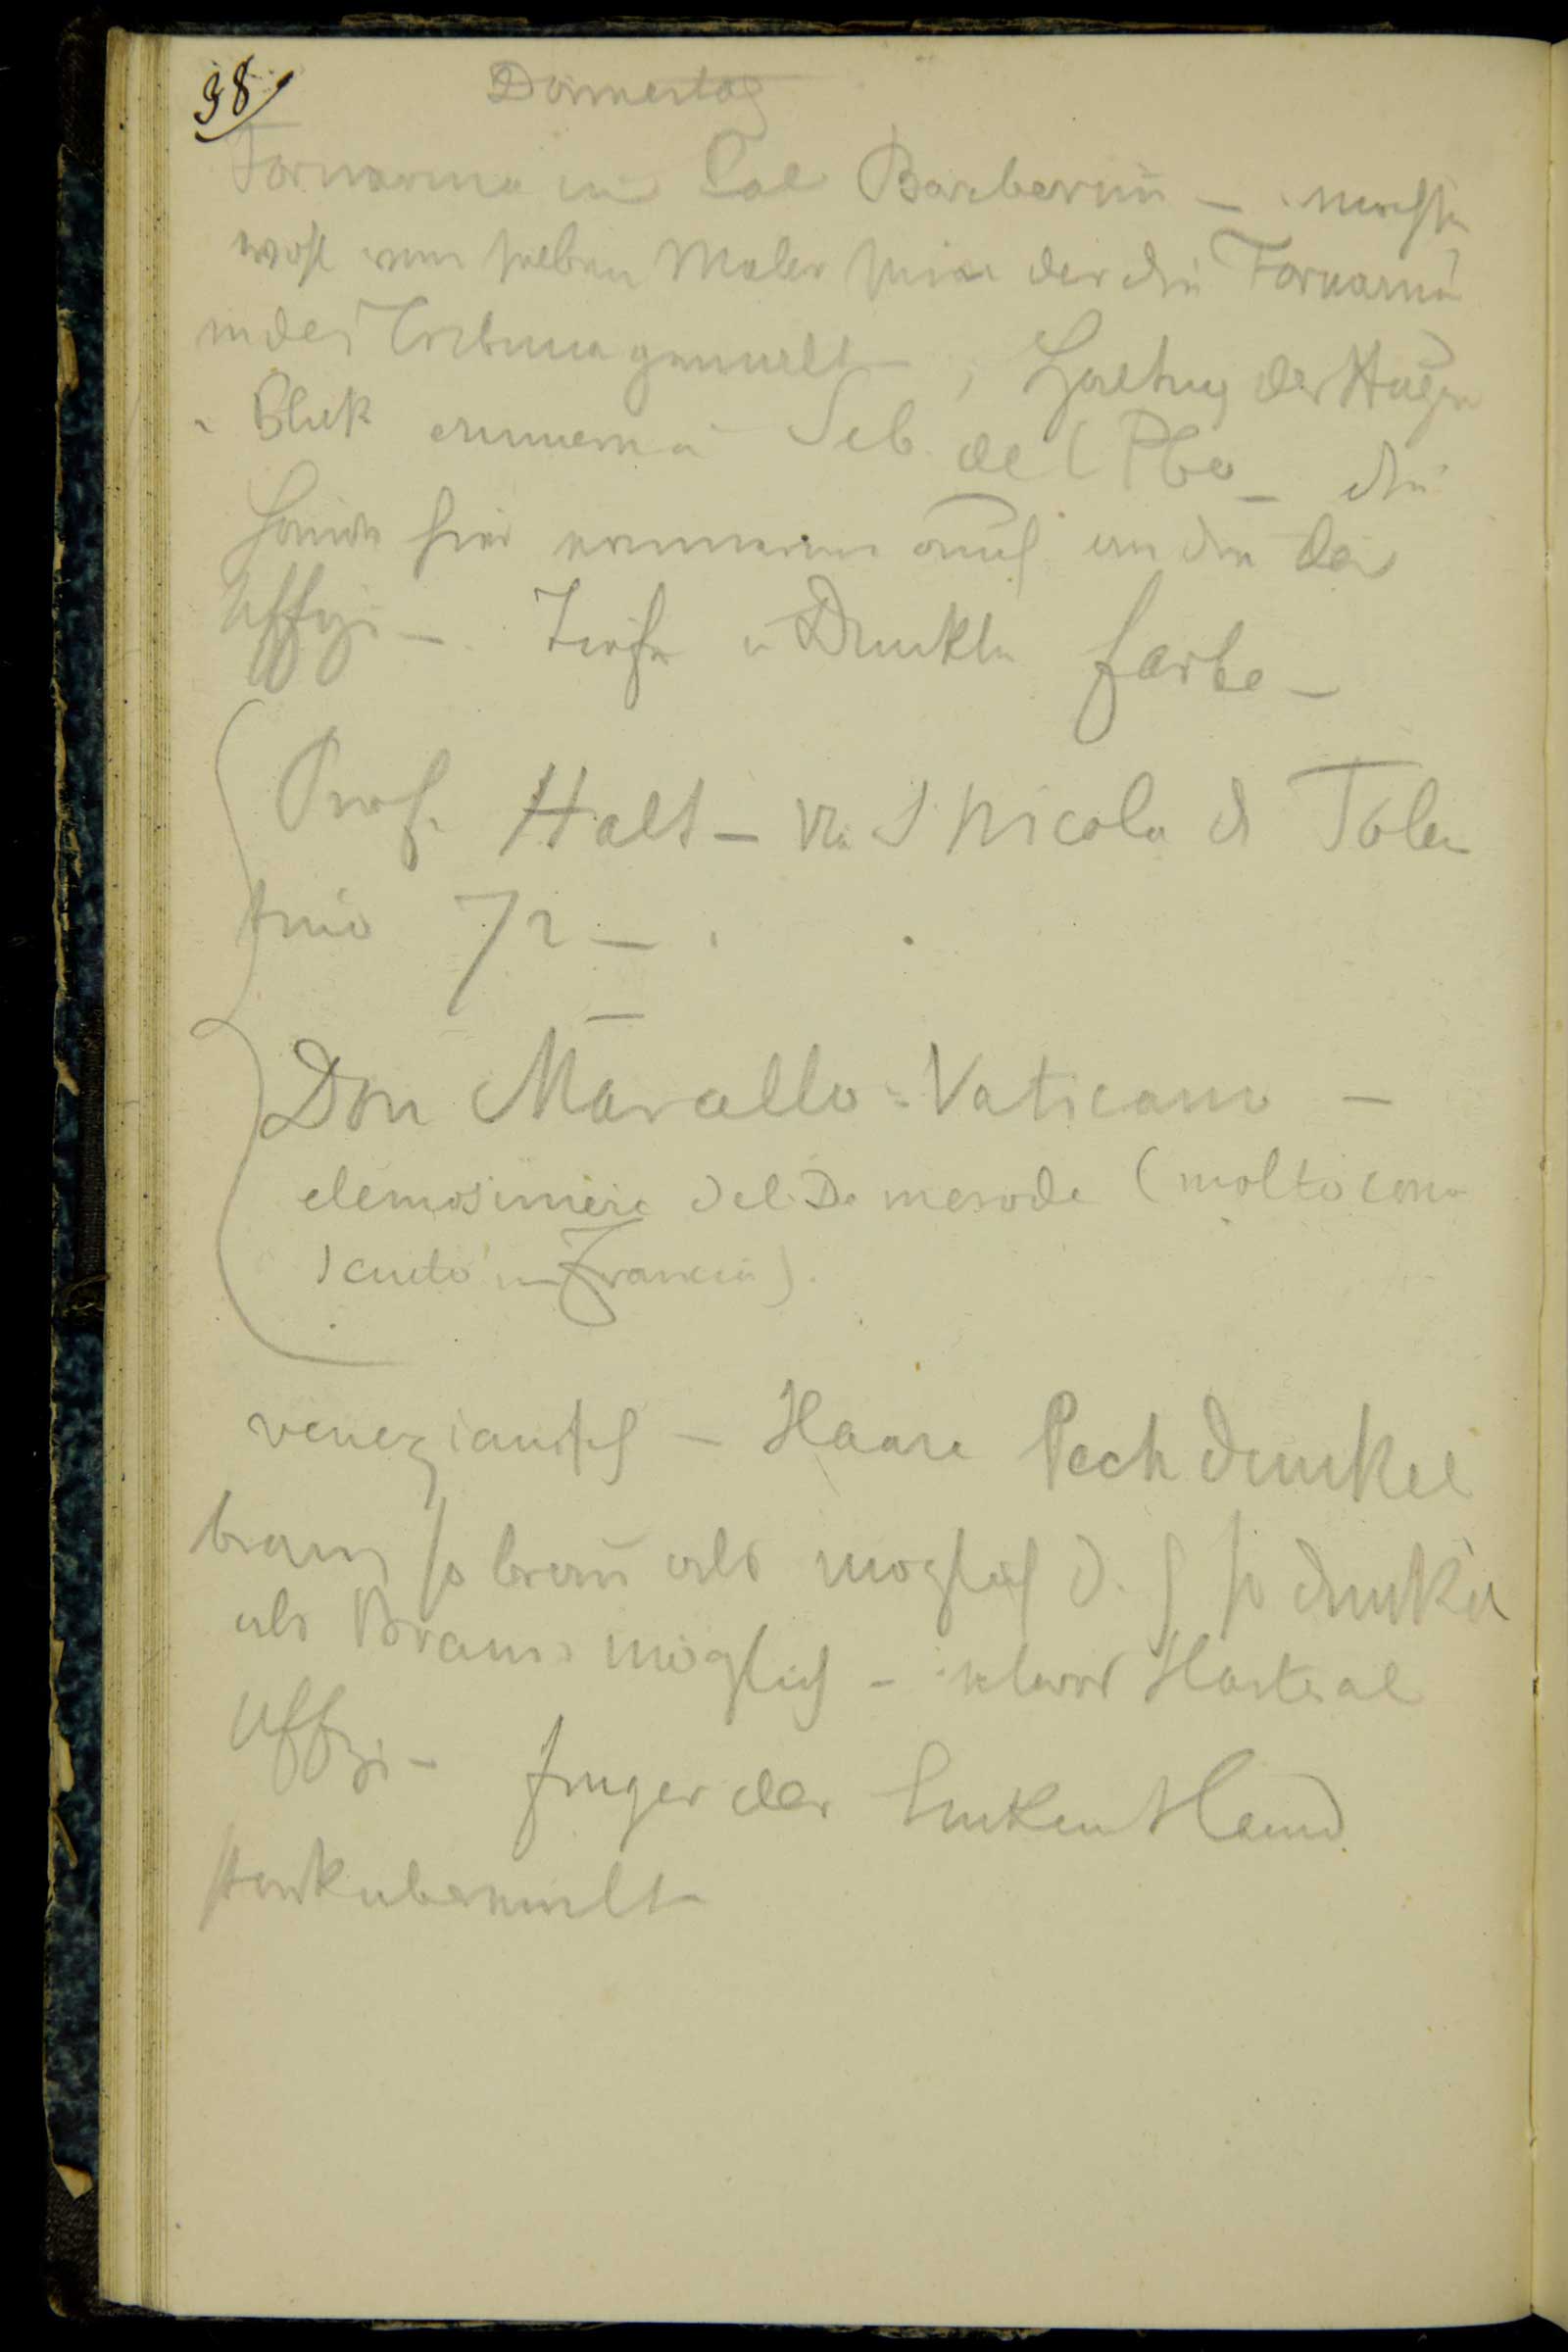 38
Donnerstag
Fornarina im Pal Barberini –
wohl vom selben Maler sein der die Fornarina
in der Tribuna gemalt, Haltung der Augen
u Blick erinnern a Seb. del Pbo – die
Hände hier erinnern auch an die der
Uffizi – Tiefe u Dunkle farbe –
Prof. Halt – via S Nicola di Tolen
tino 72 –
Don Marcello – Vaticano –
elemosiniere del De Merode (molto cono
sciuto in Francia).
venezianisch – Haare Pech dunkel
braun so braun als möglich d. h so dunkel
als Braun möglich – Uffizi – finger der linken Hand
stark übermalt